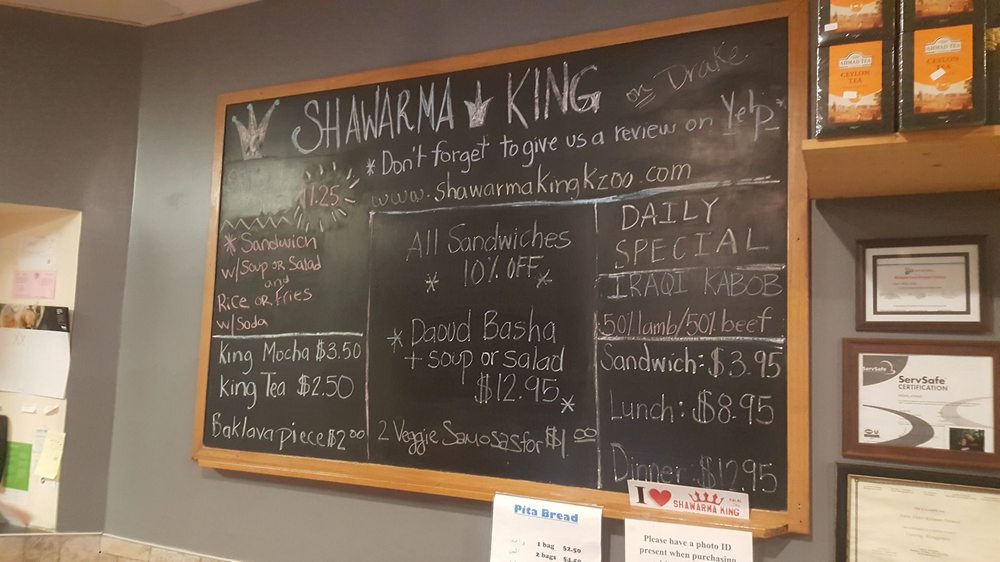 SHAWARMA KING on Drake
*Don't forget to give us a review on Yelp*
www.shawarmakingkzoo.com
11.25
* Sandwich
w/Soup OR Salad
and
Rice OR Fries
w/Soda
King Mocha $3.50
King Tea $2.50
Baklava piece $2.00
All Sandwiches
* 10% OFF *
* Daoud Basha
+ soup or salad
$12.95 *
2 Veggie Samosas for $1.00
DAILY
SPECIAL
IRAQI KABOB
50% lamb/50% beef
Sandwich: $3.95
Lunch: $8.95
Dinner: $12.95
I SHAWARMA KING
Pita Bread
1 bag $2.50
2 bags $4.50
Please have a photo ID
present when purchasing
AHMAD TEA
CEYLON
TEA
AHMAD TEA
CEYLON
TEA
ServSafe
ServSafe
CERTIFICATION